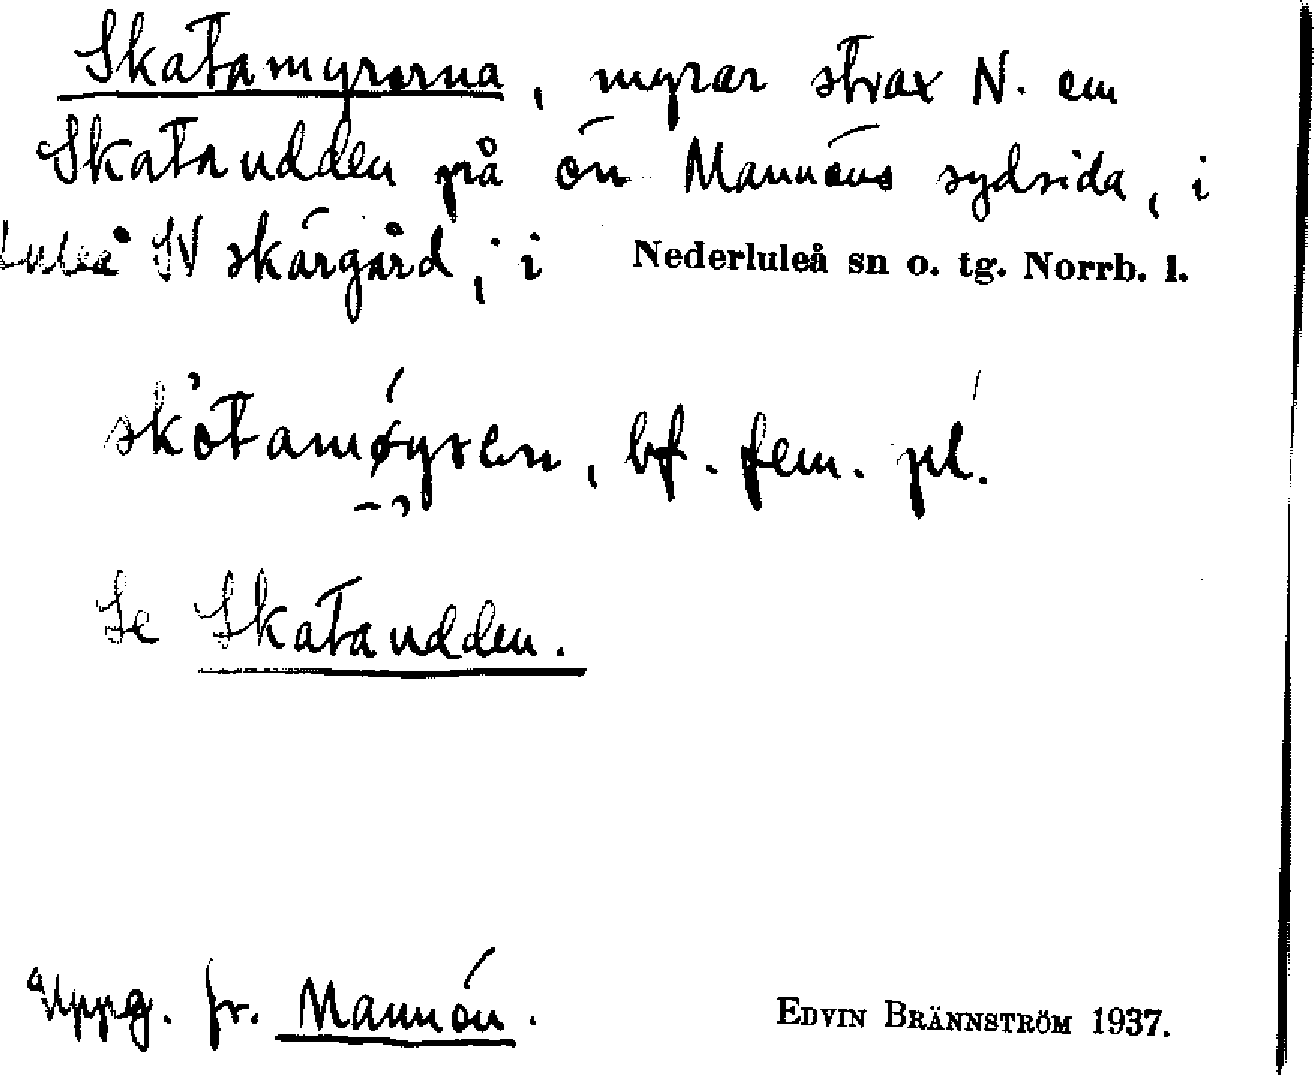 Skatamyrorna, myrar strax N. om
Skataudden på ön Mannöns sydsida, i
Luleå SV skärgård, i Nederluleå sn o. tg. Norrb. l.
bf. fem. pl.
Se Skataudden.
Uppg. fr. Mannön.
EDVIN BRÄNNSTRÖM 1937.